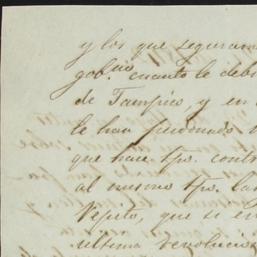 y los que seguram
gob.no cuanto le deb
de Tampico, y en
le han
que hace tpo. contr
al mismo tpo. la
Pepito, que si en
última revolucion